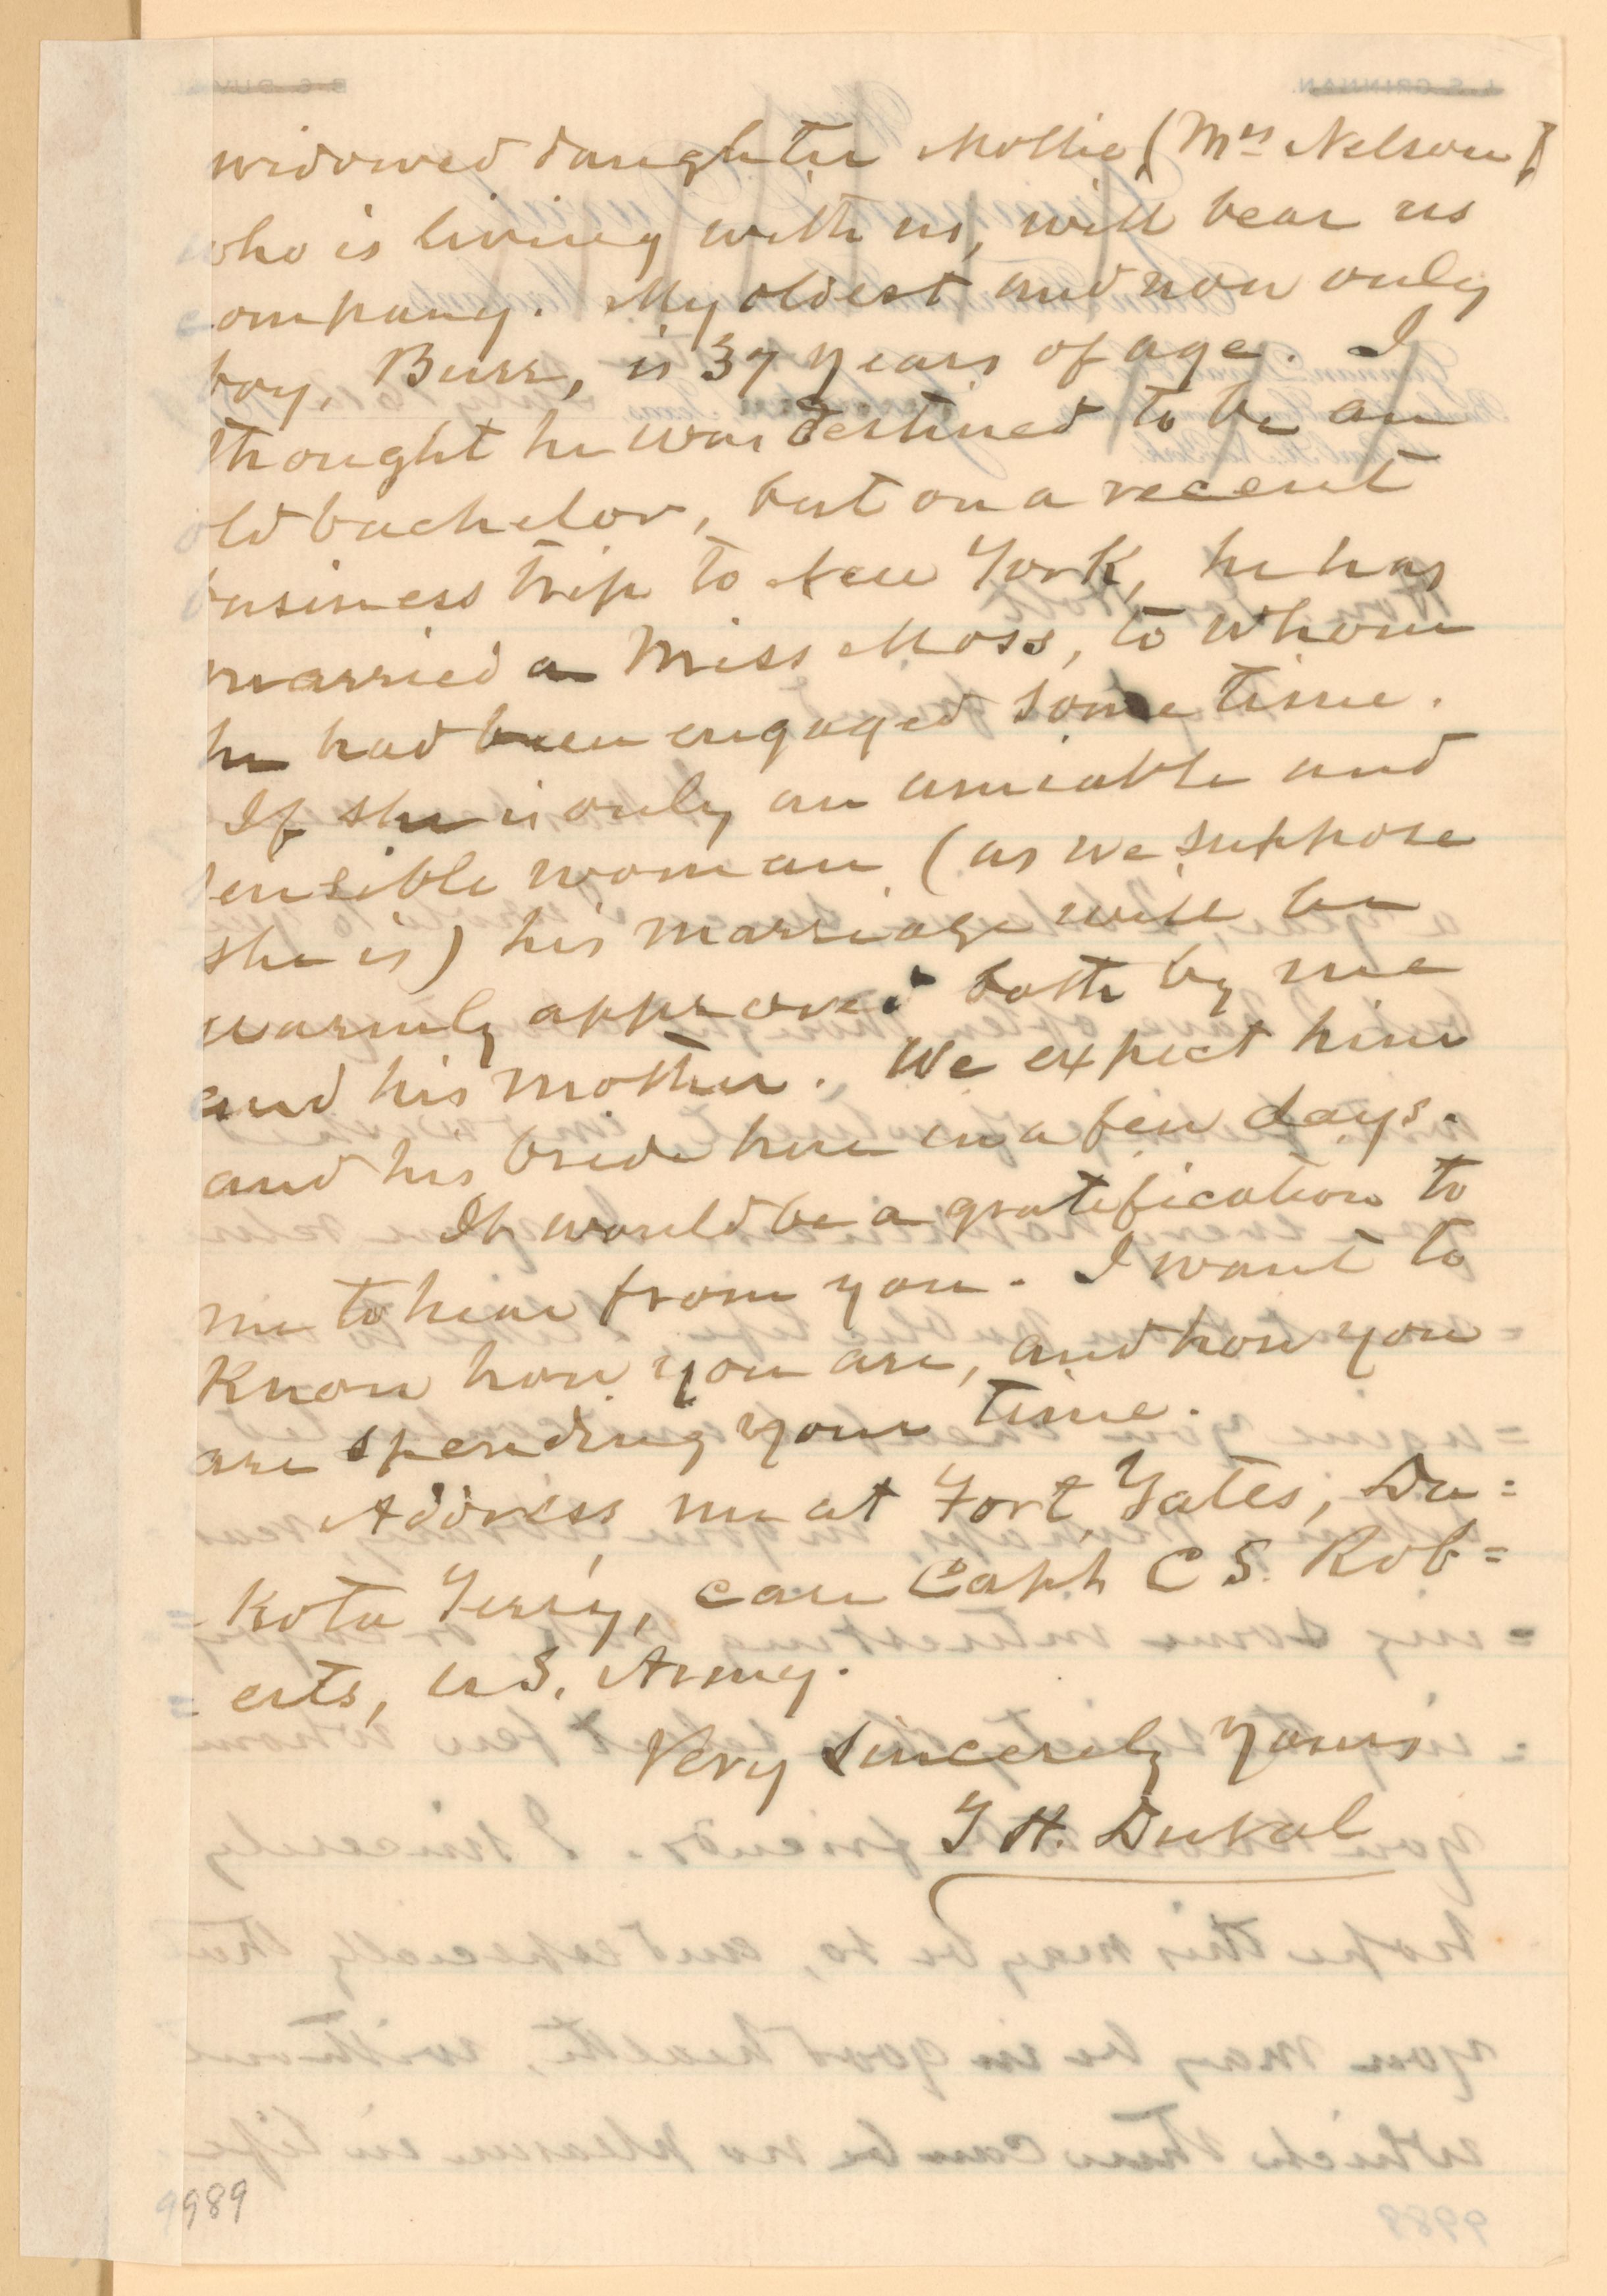 widowed daughter Mollie (Mrs Nelson)
who is living with us, will bear us
company. My oldest and now only
boy, Burr, is 37 years of age. I
thought he was destined to be an
old bachelor, but on a recent
business trip to New York, he has
married a Miss Moss, to whom
he had been engaged some time.
If she is only an amiable and
sensible woman (as we suppose
she is) his marriage will be
warmly approved both by me
and his mother. We expect him
and his bride here in a few days.
It would be a gratification to
me to hear from you. I want to
know how you are, and how you
are spending your time.
Address me at Fort Yates, Da=
kota Terr'y, care Capt C S. Rob=
erts, U S. Army.
Very sincerely yours
T H. Duval
9989